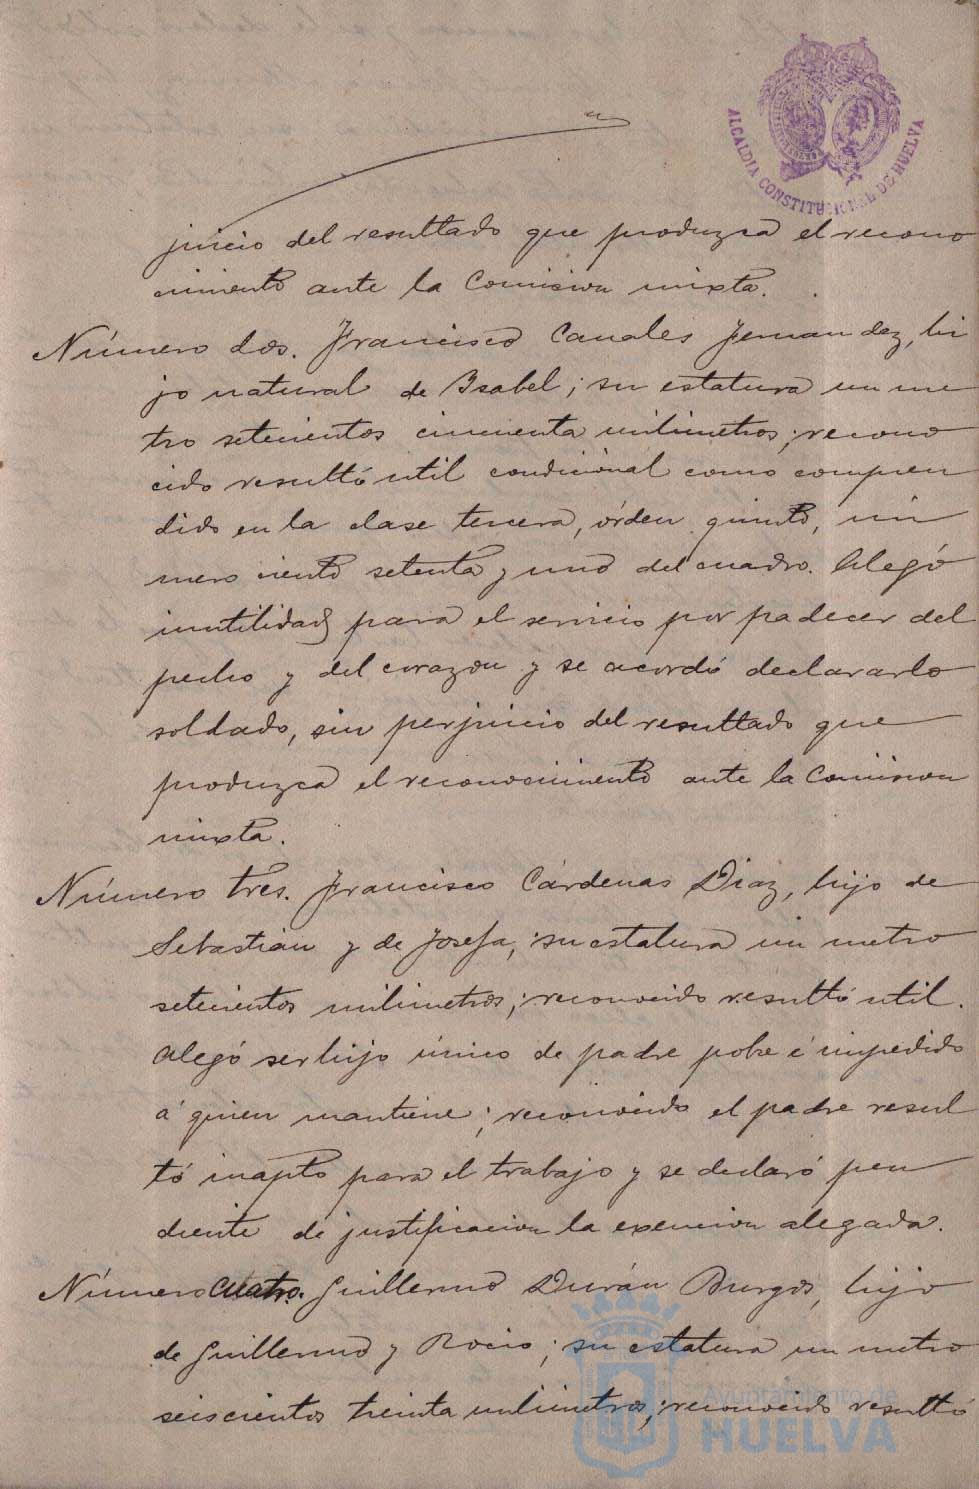 ALCALDIA CONSTITUCIONAL DE HUELVA
juicio del resultado que produzca el recono
cimiento ante la Comision mixta.
Número dos. Francisco Canales Fernandez, hi
jo natural de Isabel; su estatura un me
tro setecientos cincuenta milimetros; recono
cido resultó util condicional como compren
dido en la clase tercera, órden quinto, nú
mero ciento setenta y uno del cuadro. Alegó
inutilidad para el servicio por padecer del
pecho y del corazon y se acordó declararlo
soldado, sin perjuicio del resultado que
produzca el reconocimiento ante la Comision
mixta.
Número tres. Francisco Cárdenas Diaz, hijo de
Sebastián y de Josefa; su estatura un metro
setecientos milimetros; reconocido resultó util.
Alegó ser hijo único de padre pobre é impedido
á quien mantiene; reconocido el padre resul
tó inapto para el trabajo y se declaró pen
diente de justificacion la exencion alegada.
Número cuatro. Guillermo Durán Burgos, hijo
de Guillermo y Rocio; su estatura un metro
seiscientos treinta milimetros; reconocido resultó
Ayuntamiento de
HUELVA